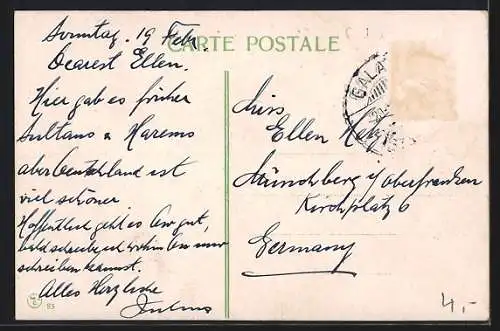 Sonntag. 19 Febr.
CARTE POSTALE
Dearest Ellen.
Hier gab es früher
Sultans u Harems
aber Deutschland ist
viel schöner
Hoffentlich geht es Dir gut,
bald schreibe ich wohin Du mir
schreiben kannst.
Alles Herzliche
Julius
85
GALA
Miss
Ellen
Münchberg i/ Oberfranken
Kirchplatz 6
Germany
4,-